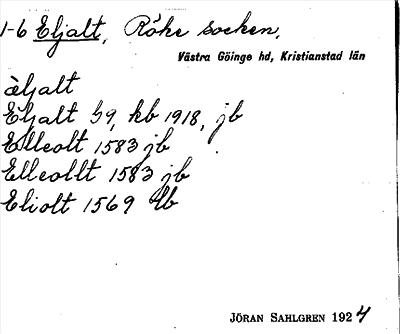 1-6 Eljalt, Röke socken,
Västra Göinge hd, Kristianstad län
äljalt
Eljalt 59, kb 1918, jb
Elleolt 1583 jb
Elleollt 1583 jb
Eliolt 1569
JÖRAN SAHLGREN 1924